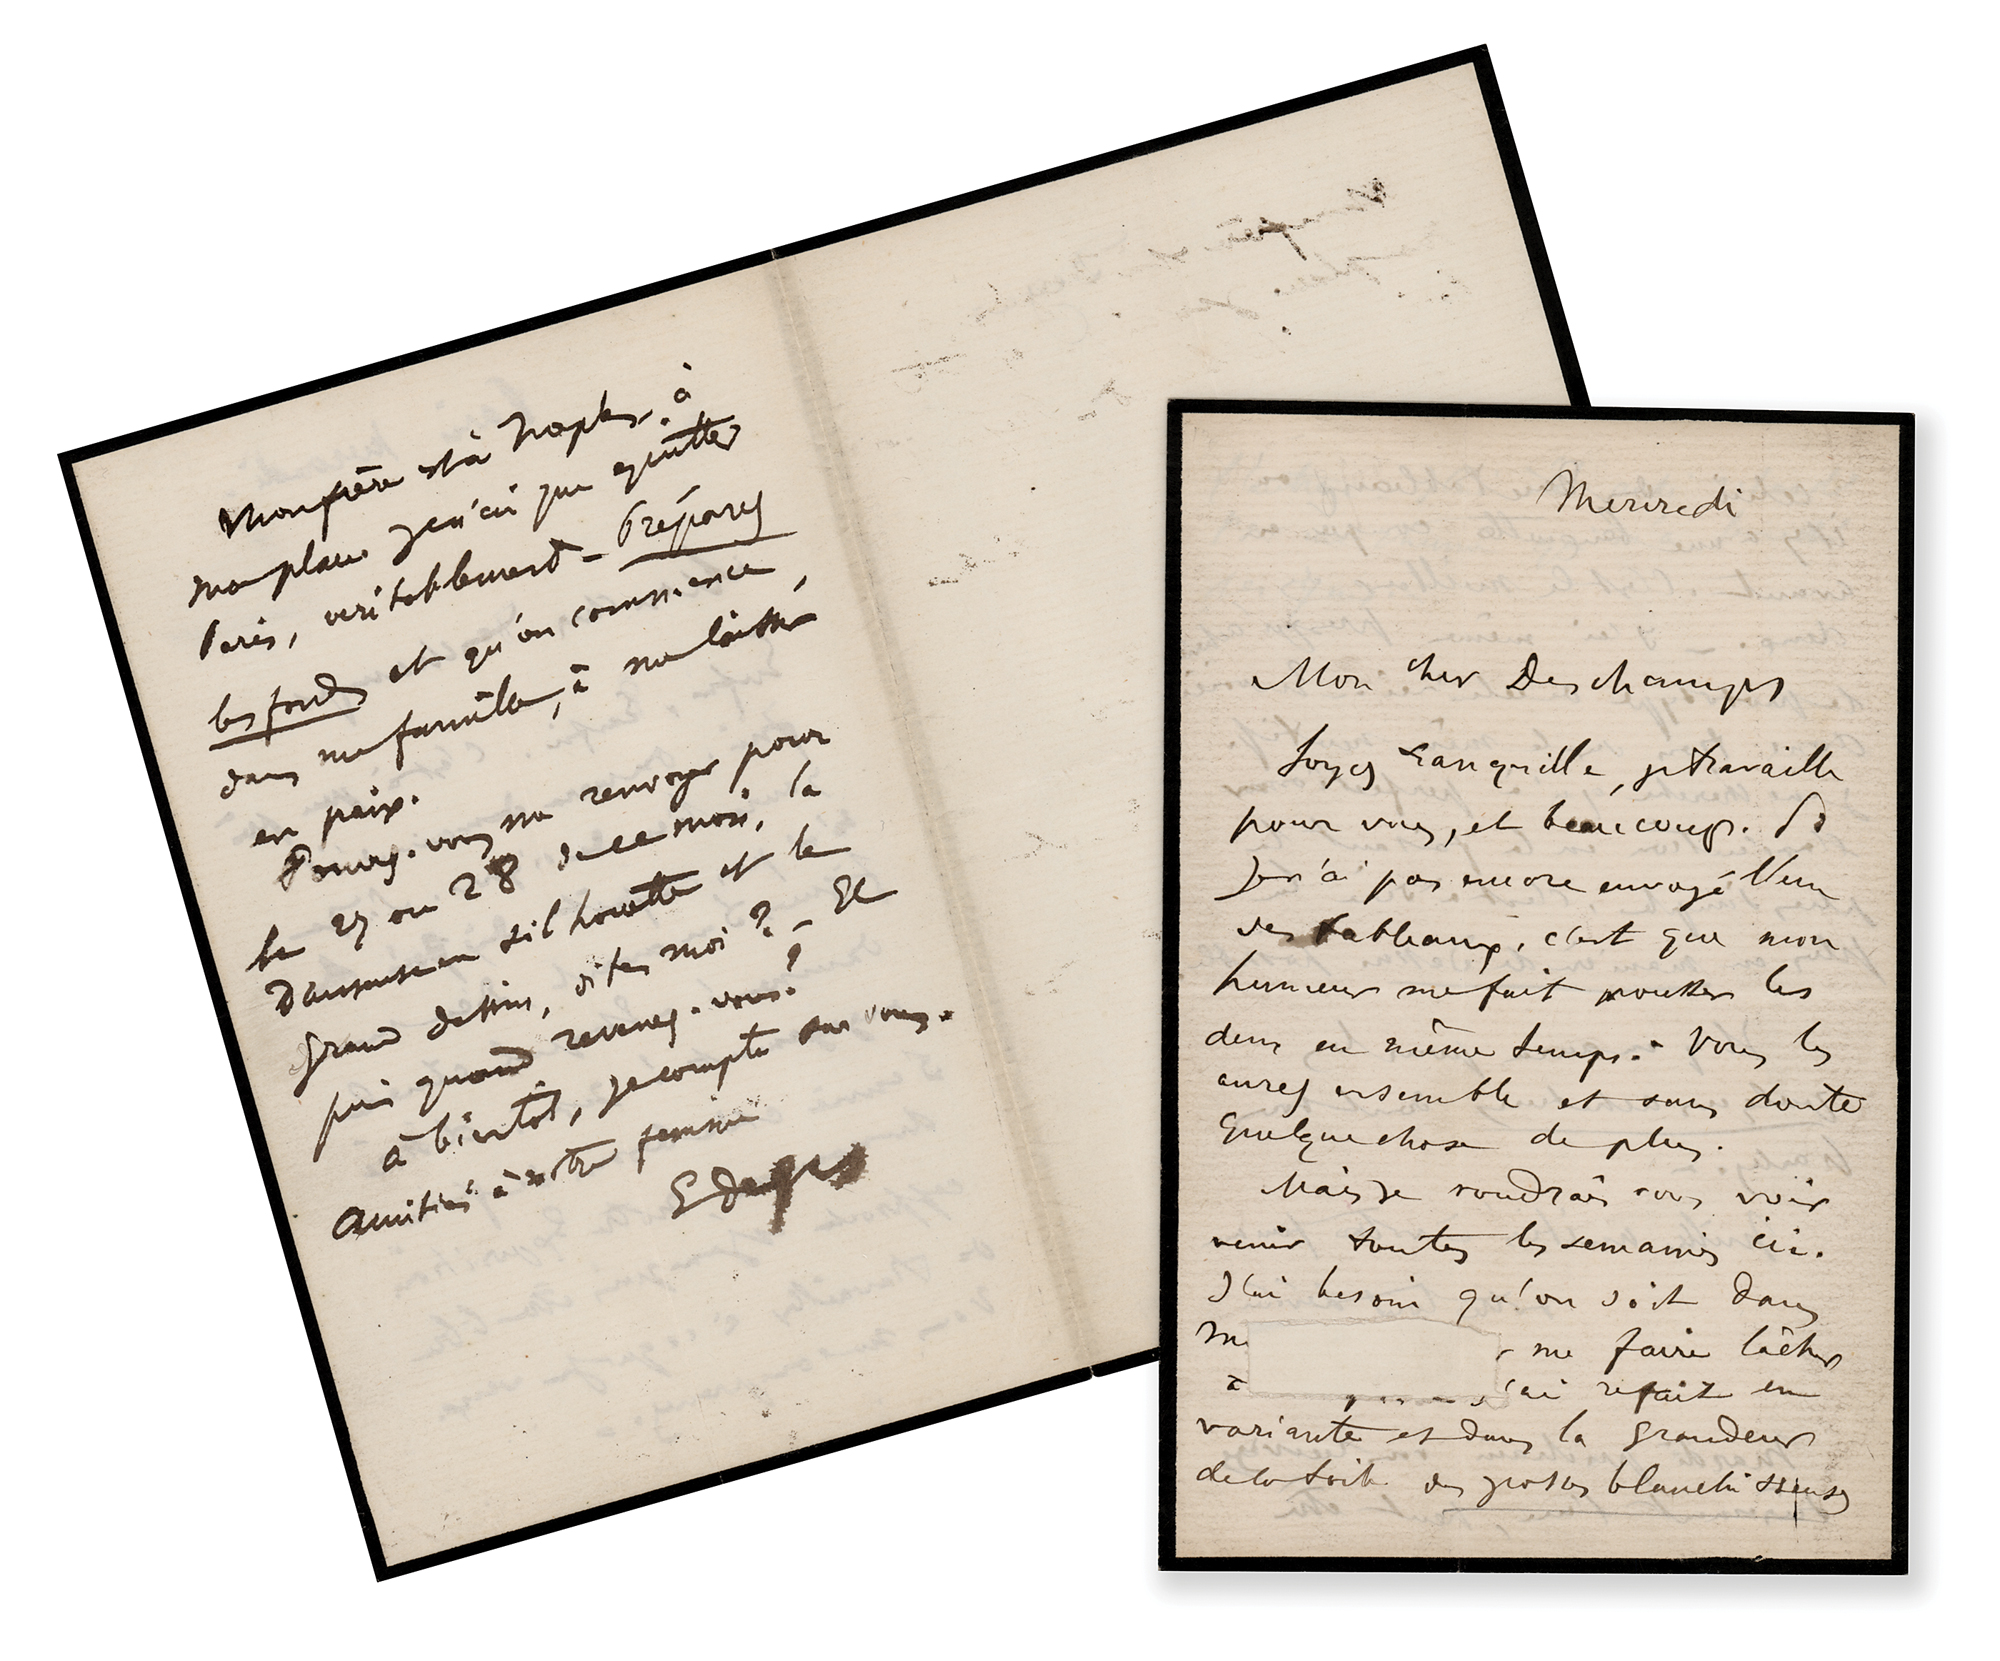 Mercredi
Mon cher Deschamps
Soyez tranquille, je travaille
pour vous, et beaucoup. Si
je n'ai pas encore envoyé l'un
des tableaux, c'est que mon
humeur me fait pousser les
deux en même temps. Vous les
aurez ensemble et sans doute
quelque chose de plus.
Mais je voudrais vous voir
venir toutes les semaines ici.
J'ai besoin qu'on soit dans
me faire lâcher
à j'ai refait en
variante et dans la grandeur
de la toile des grosses blanchisseuses
Mon frère est à Naples. à
ma place je n'ai pu quitter
Paris, véritablement – Préparez
les fonds et qu'on commence,
dans ma famille, à me laisser
en paix.
Pouvez-vous me renvoyer pour
le 27 ou 28 de ce mois, la
Danseuse en silhouette et le
grand dessin, dites moi ? – Et
puis quand revenez-vous ?
à bientôt, je compte sur vous.
Amitiés à votre femme
E Degas